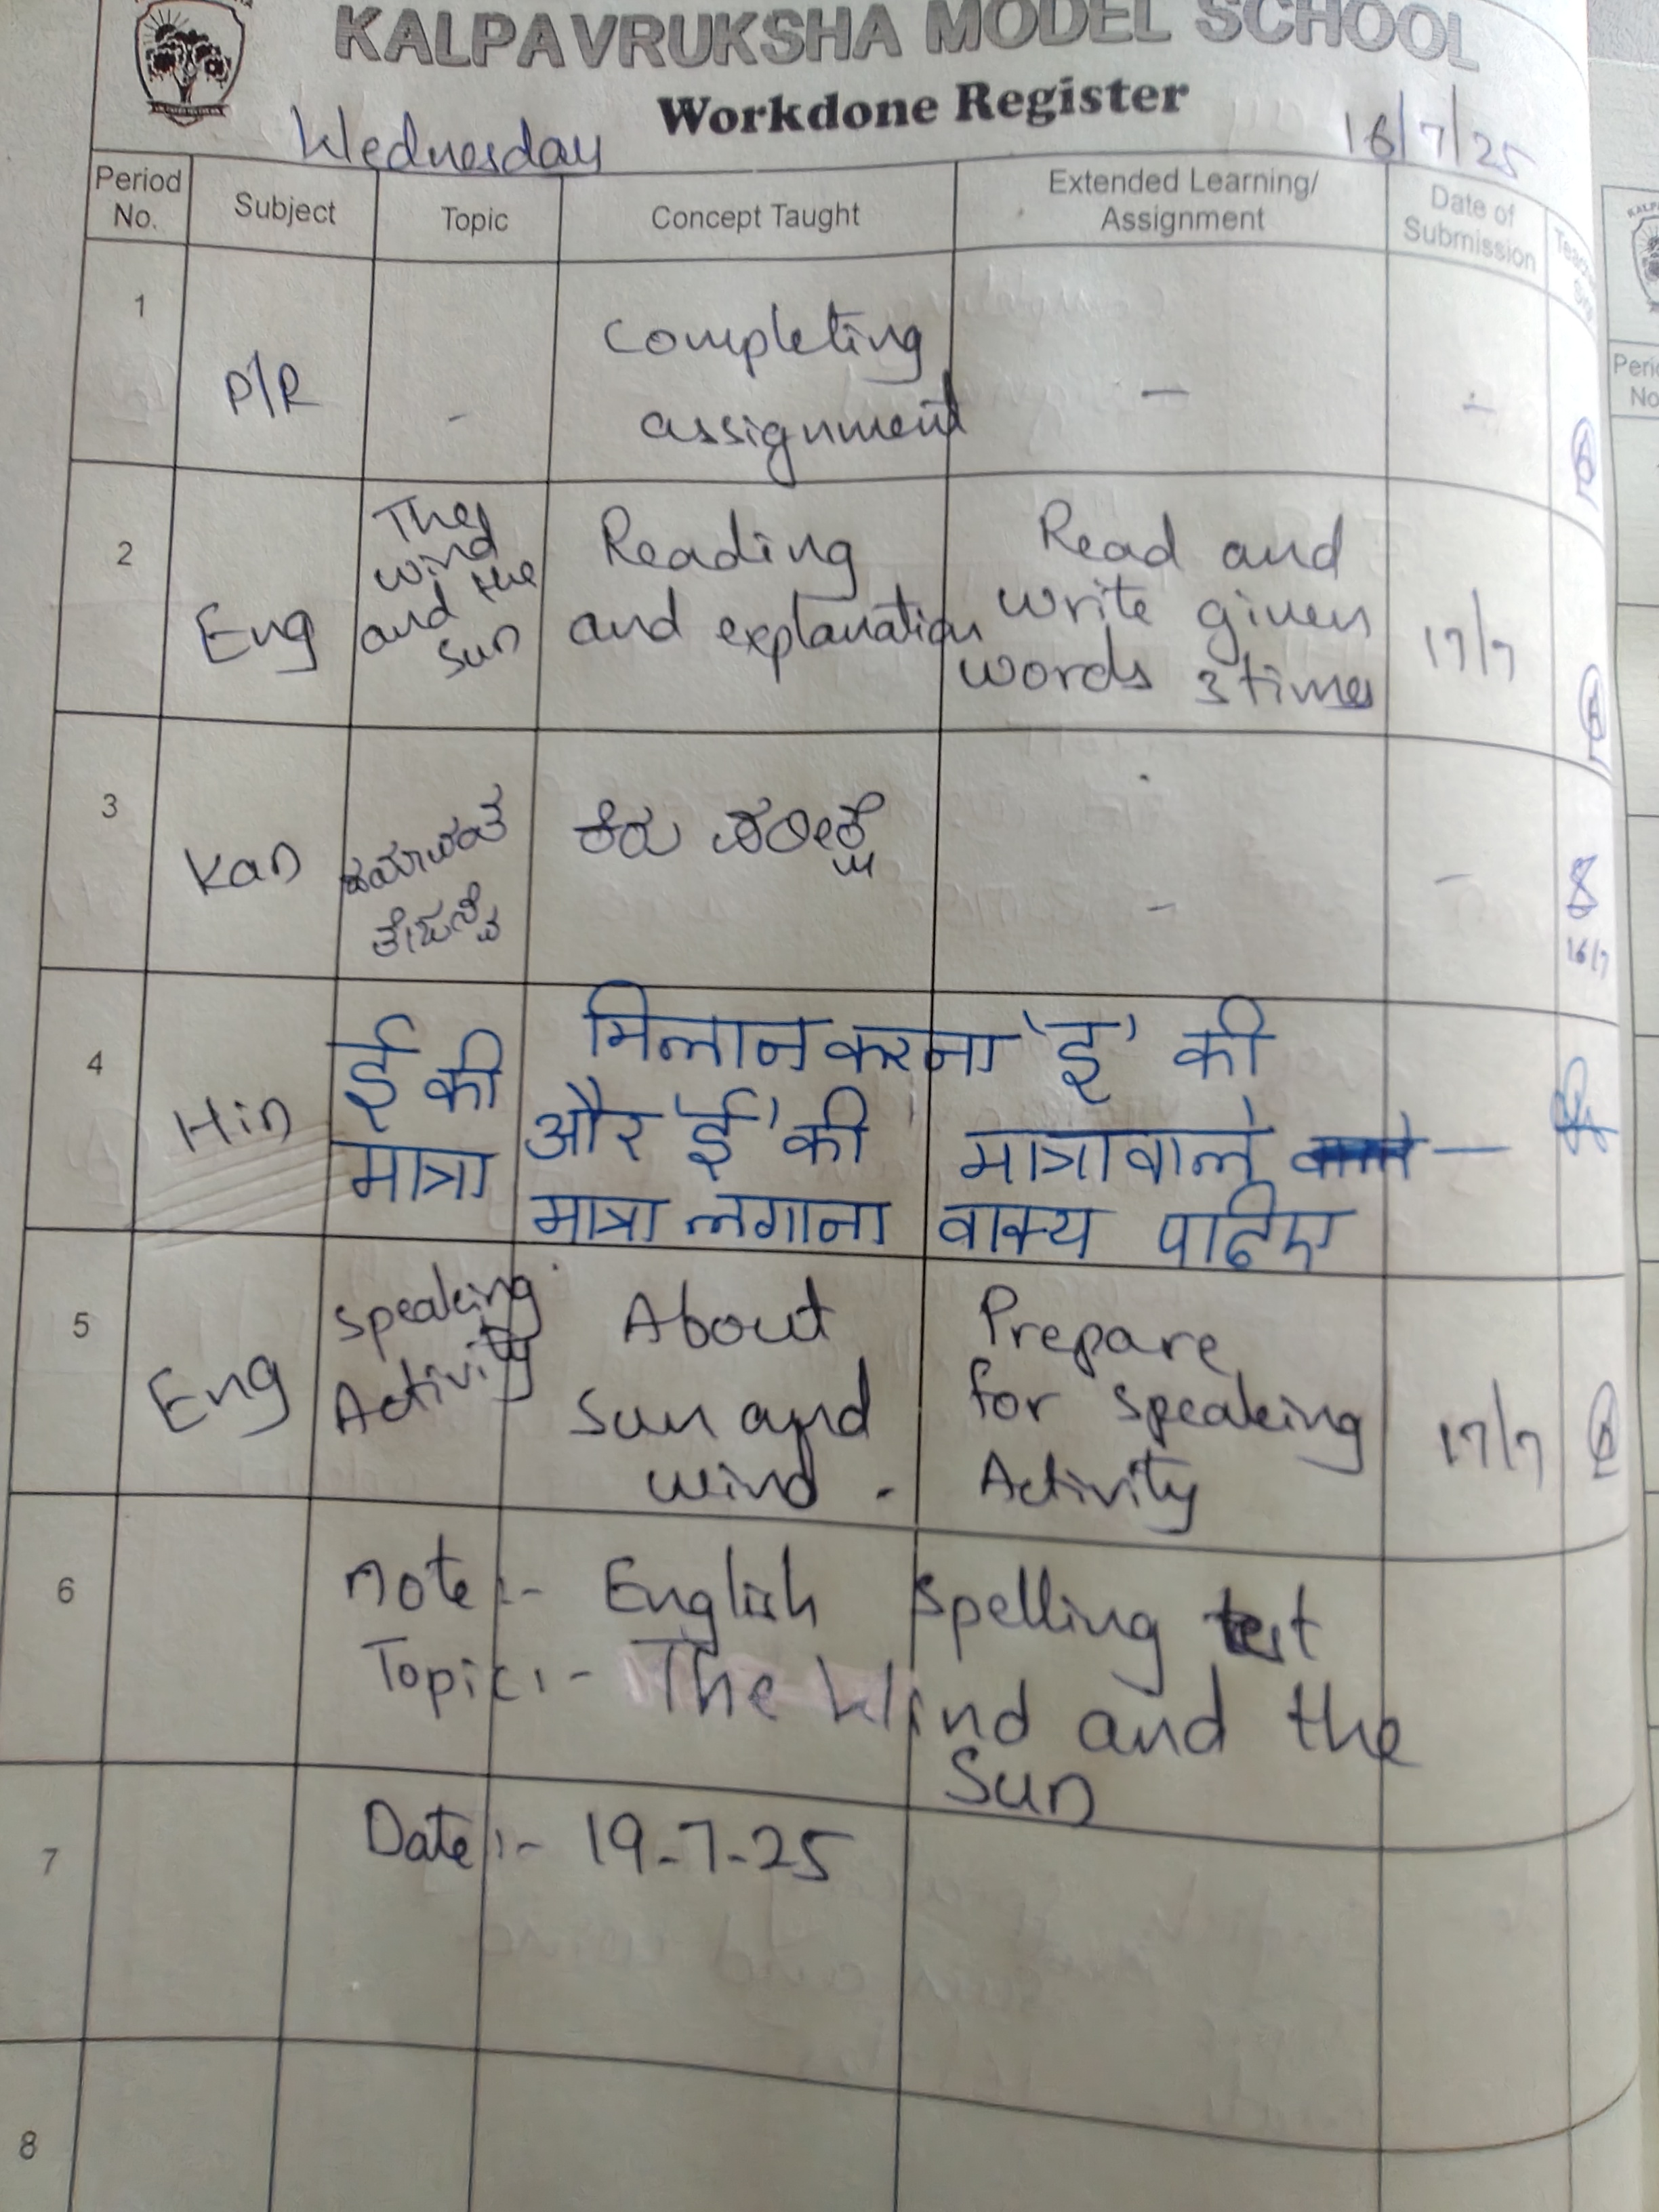 KALPAVRUKSHA MODEL SCHOOL
Workdone Register
Wednesday 16/7/25
Period No. Subject Topic Concept Taught Extended Learning/ Assignment Date of Submission
1 P/R - Completing assignment - -
2 Eng The wind and the Sun Reading and explanation Read and write given words 3 times 17/7
3 Kan ಕಿರು ಪರೀಕ್ಷೆ - - 16/7
4 Hin ई की मात्रा मिलान करना और 'ई' की मात्रा लगाना 'इ' की मात्रा वाले वाक्य पढिए -
5 Eng Speaking Activity About Sun and wind. Prepare for speaking Activity 17/7
6 Note:- English Spelling test
Topic:- The Wind and the
Sun
7 Date:- 19-7-25
8
Perio
No